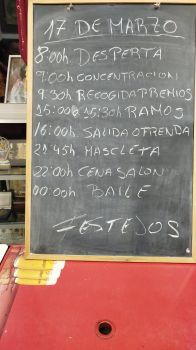 17 DE MARZO
8:00h DESPERTA
9:00h CONCENTRACION
9:30h RECOGIDA PREMIOS
15:00 a 15:30h RAMOS
16:00h SALIDA OFRENDA
21:45h MASCLETA
22:00h CENA SALON
00:00h BAILE
FESTEJOS